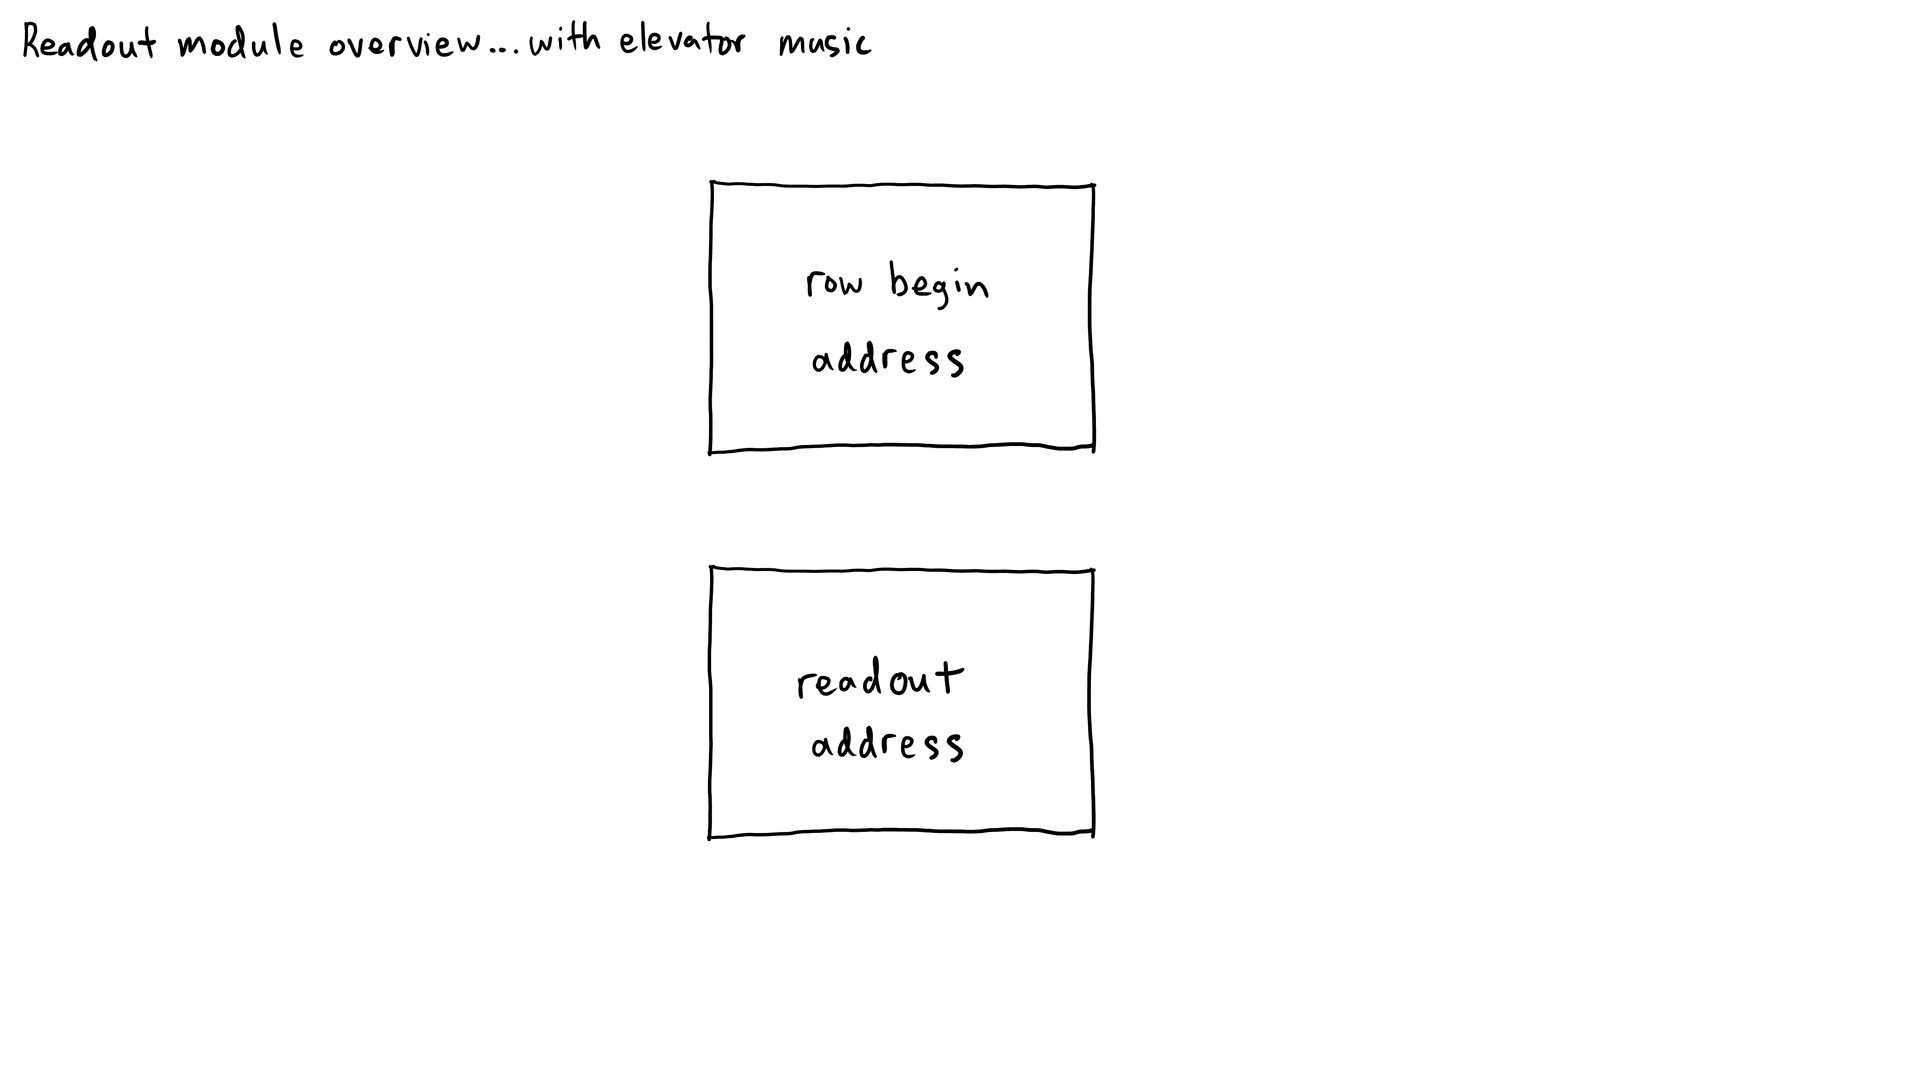 Readout module overview...with elevator music
row begin
address
readout
address